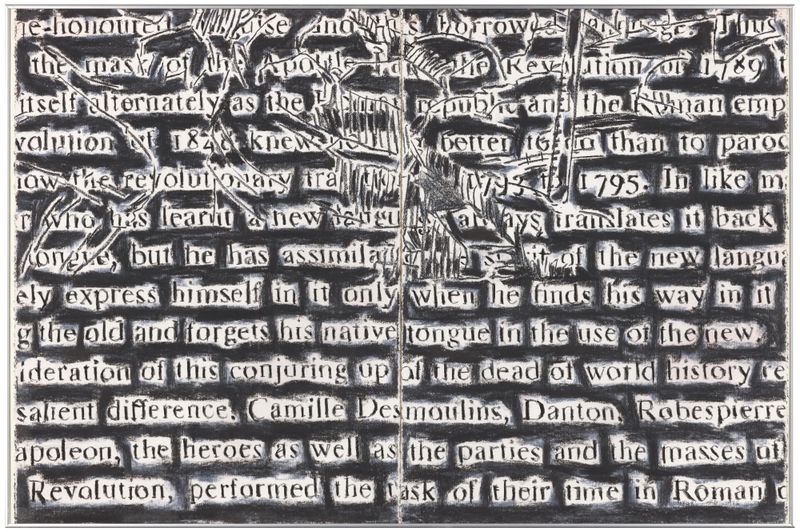 e-honoured and borrowed Thus
the mask of the Apostle the Revolution of 1789 t
itself alternately as the republic and the Roman emp
volution of 1848 knew better to do than to paroc
now the revolutionary tra 1793 to 1795. In like m
r who has learnt a new langu always translates it back
tongue, but he has assimilat spirit of the new langu
ely express himself in it only when he finds his way in it
g the old and forgets his native tongue in the use of the new
ideration of this conjuring up of the dead of world history re
salient difference. Camille Desmoulins, Danton, Robespierre
apoleon, the heroes as well as the parties and the masses of
Revolution, performed the task of their time in Roman c